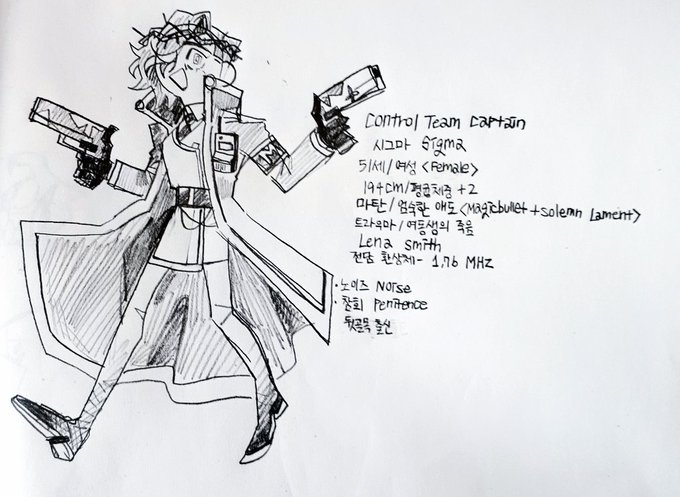 Control Team Captain
시그마 Sigma
51세/여성<Female>
194cm/평균체중+2
마탄/엄숙한 애도<Magicbullet+solemn Lament>
트라우마/여동생의 죽음
Lena smith
전담 환상체- 1.76 MHz
·노이즈 Noise
·참회 Penitence
뒷골목 출신